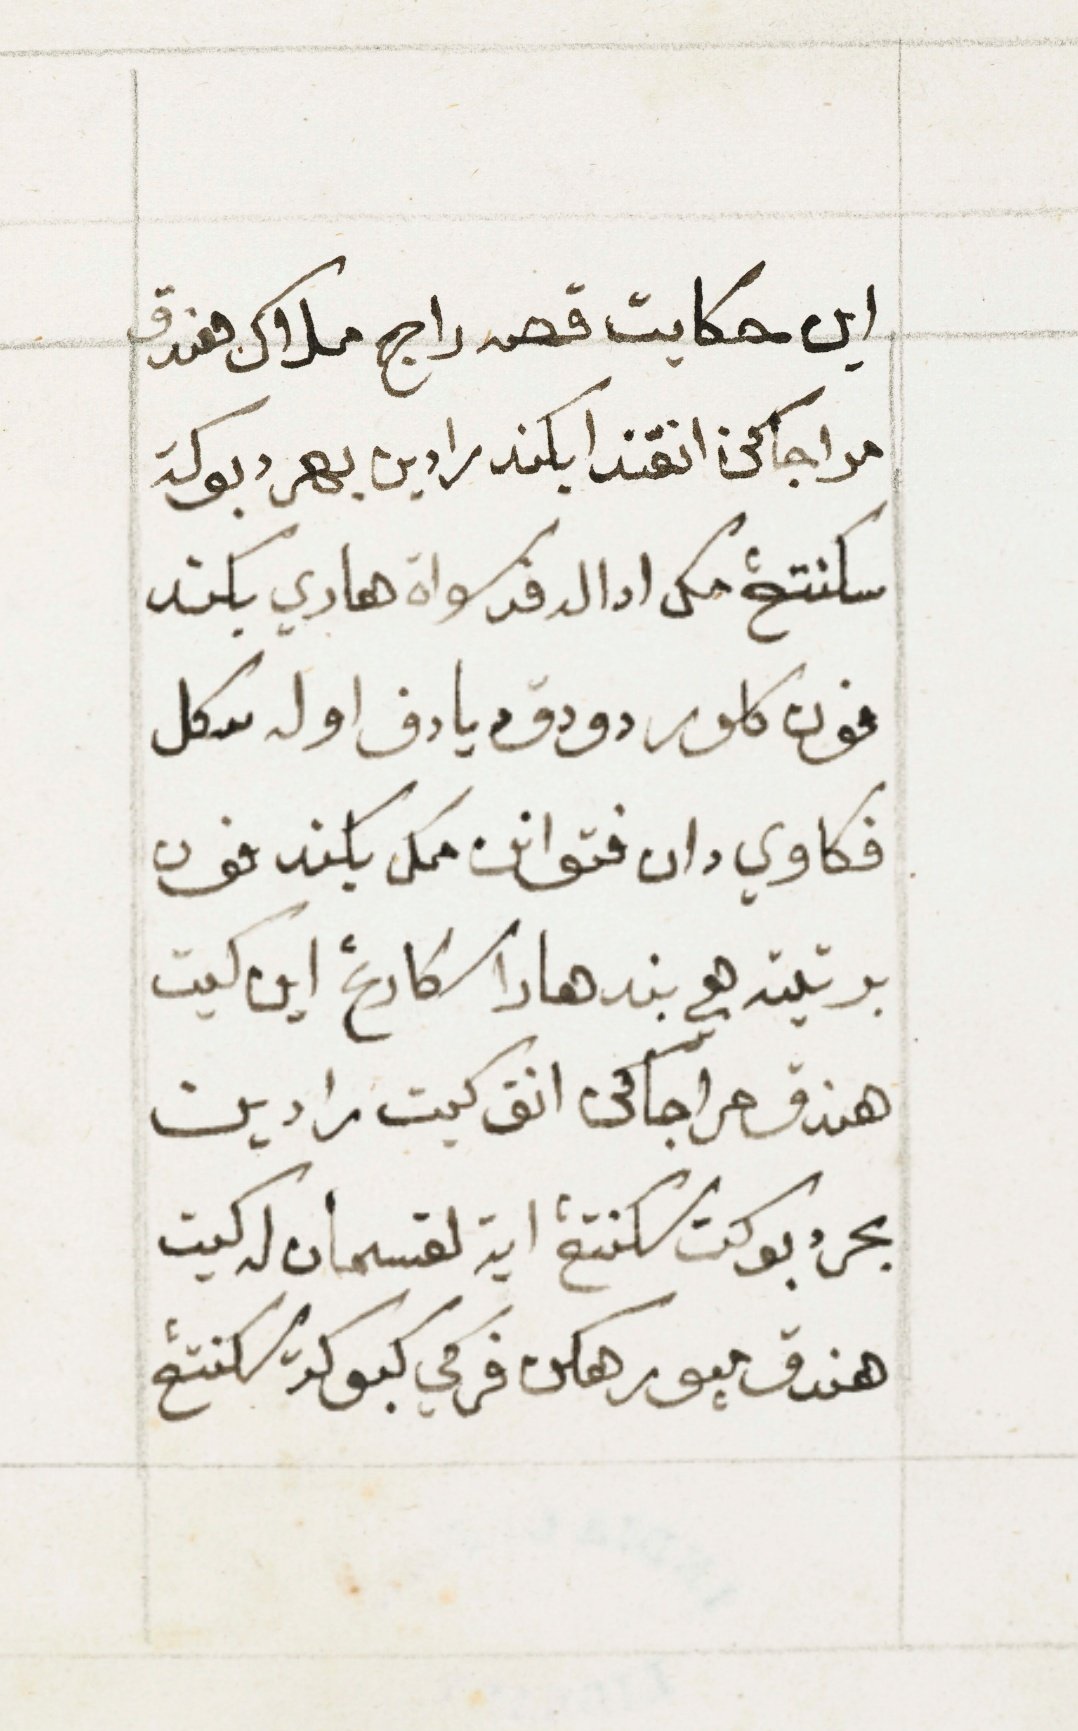 اين حكايت قصه راج ملاك هندق
مراجاكن انقند ابكند رادين بهرو بوكة
سكنتڠ مك اداله فد سواة هاري بكند
فون كلور دودق ديادف اوله سكل
فكاوي دان فتوانن مك بكند فون
برتيته هي بندهارا سكارڠ اين كيت
هندق مراجاكن انق كيت رادين
بحرو بوكت سكنتڠ ايت لقسمان له كيت
هندق سوره كن فركي كبوكة سكنتڠ